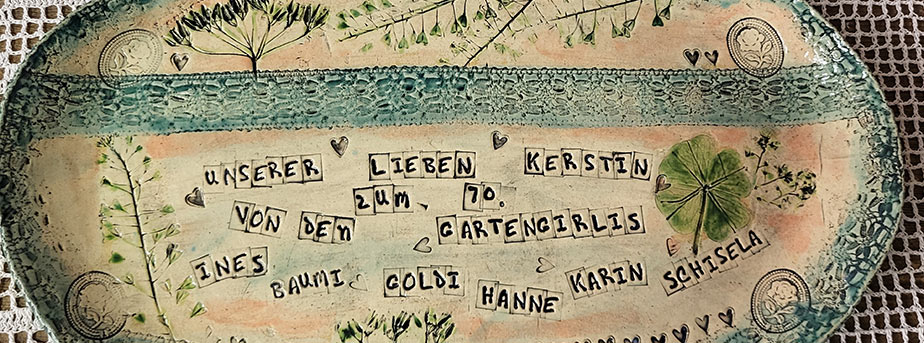 UNSERER LIEBEN KERSTIN
ZUM 70.
VON DEN GARTENGIRLIS
INES BAUMI GOLDI HANNE KARIN SCHISELA